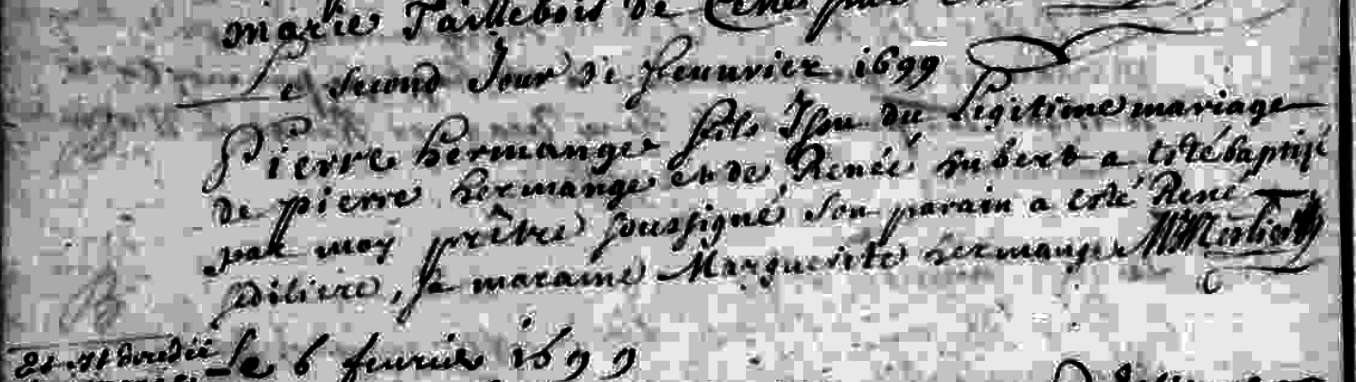 marie Taillebois de
Le second Jour de feuuvrier 1699
Pierre hermange fils Issu du Legitime mariage
de pierre hermange et de Renée hubert a esté baptisé
par moy prêtre soussigné son parain a esté René
sa maraine Marguerite hermange
Le 6 feurier 1699